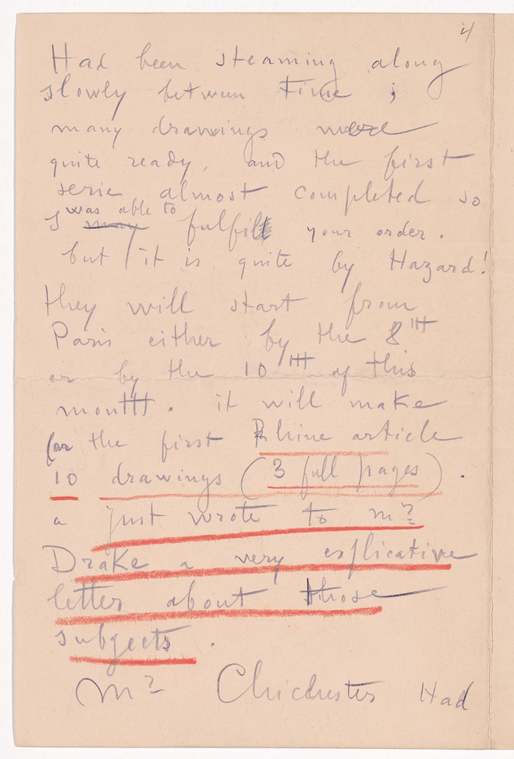 4
Had been steaming along
slowly between time ;
many drawings were
quite ready, and the first
serie almost completed so
I was able to fulfill your order.
but it is quite by Hazard!
they will start from
Paris either by the 8TH
or by the 10TH of this
montH. it will make
for the first Rhine article
10 drawings (3 full pages).
a just wrote to mr
Drake a very explicative
letter about those
subjects.
Mr Chichester Had